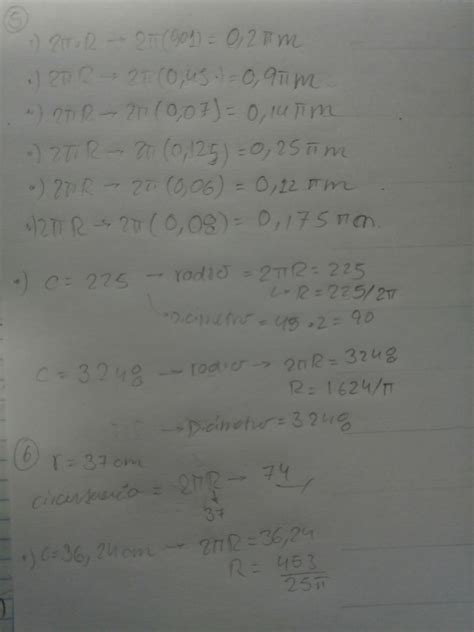 5
•) 2π•R → 2π(001) = 0,2πm
•) 2πR → 2π(0,45•) = 0,9πm
•) 2πR → 2π(0,07) = 0,14πm
•) 2πR → 2π(0,125) = 0,25πm
•) 2πR → 2π(0,06) = 0,12πm
•) 2πR → 2π(0,08) = 0,175πm
•) C = 225 → radio = 2πR = 225
R = 225/2π
→ Diámetro = 45 • 2 = 90
C = 3248 → radio → 2πR = 3248
R = 1624/π
→ Diámetro = 3248
6
r = 37cm
= 2πR → 74
37
•) C = 36,24cm → 2πR = 36,24
R = 453/25π